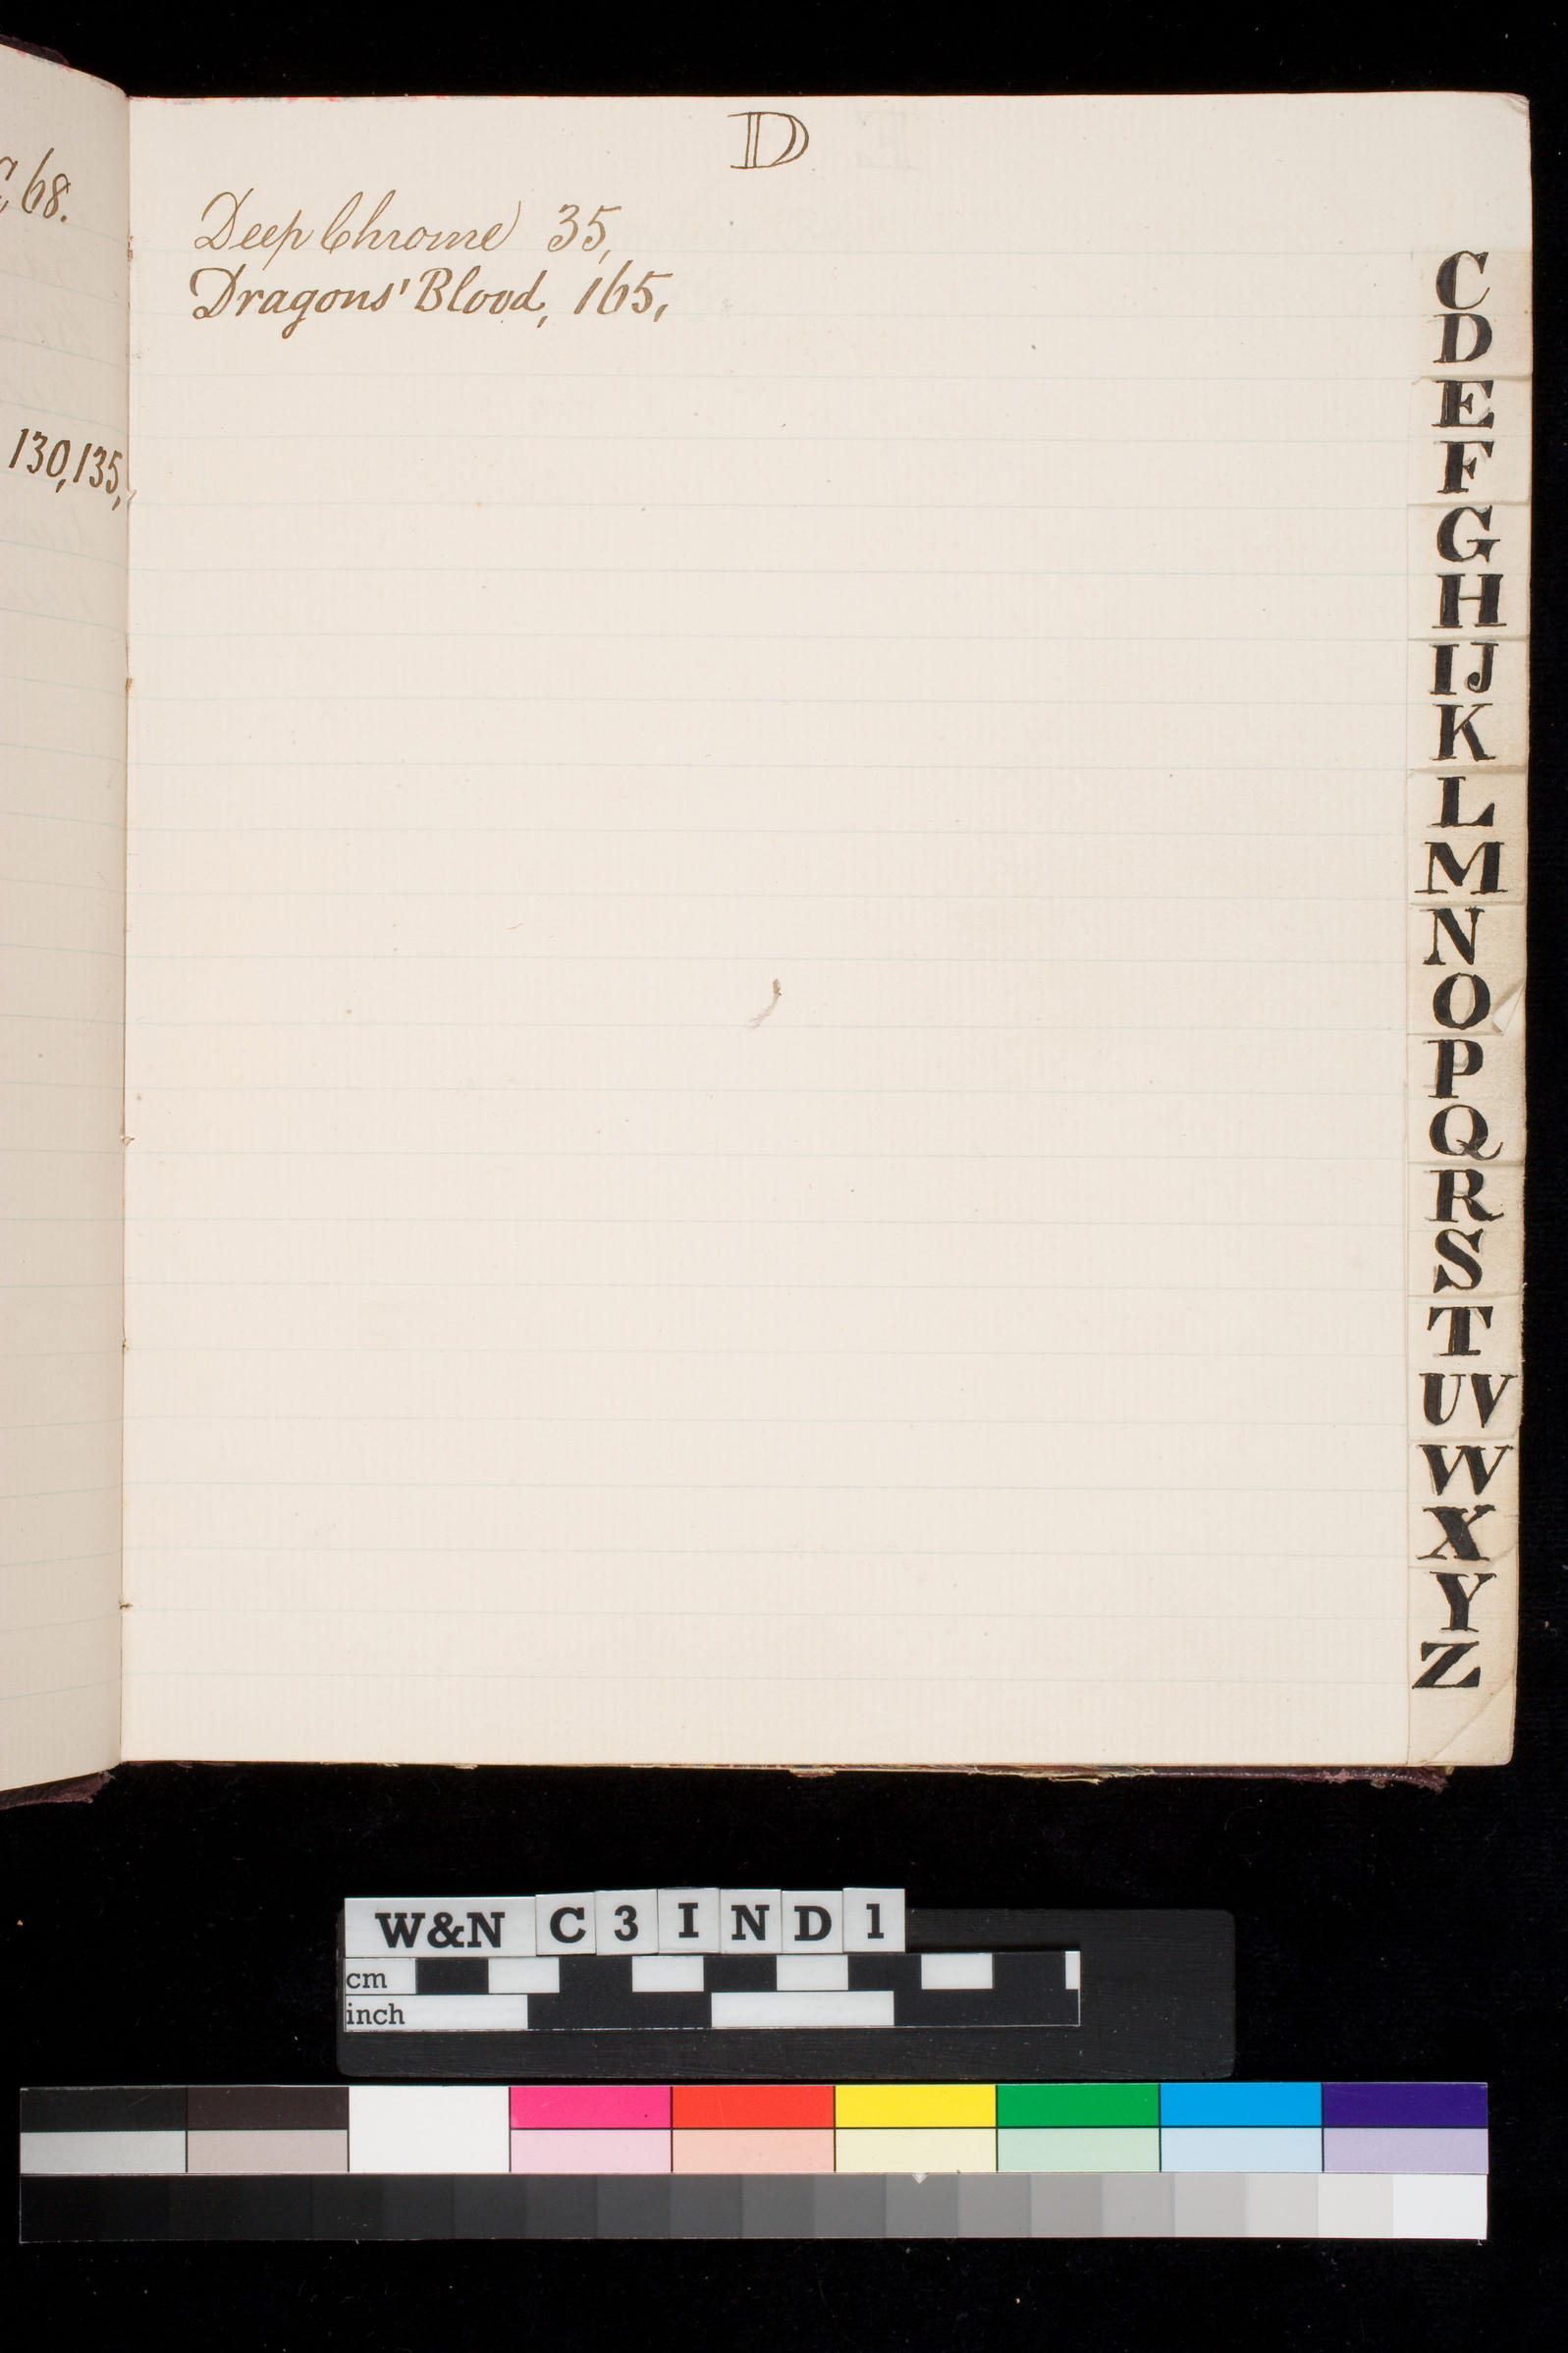 68.
130, 135,
D
Deep Chrome 35,
Dragons' Blood, 165,
C
D
E
F
G
H
IJ
K
L
M
N
O
P
Q
R
S
T
UV
W
X
Y
Z
W&N C 3 I N D 1
cm
inch